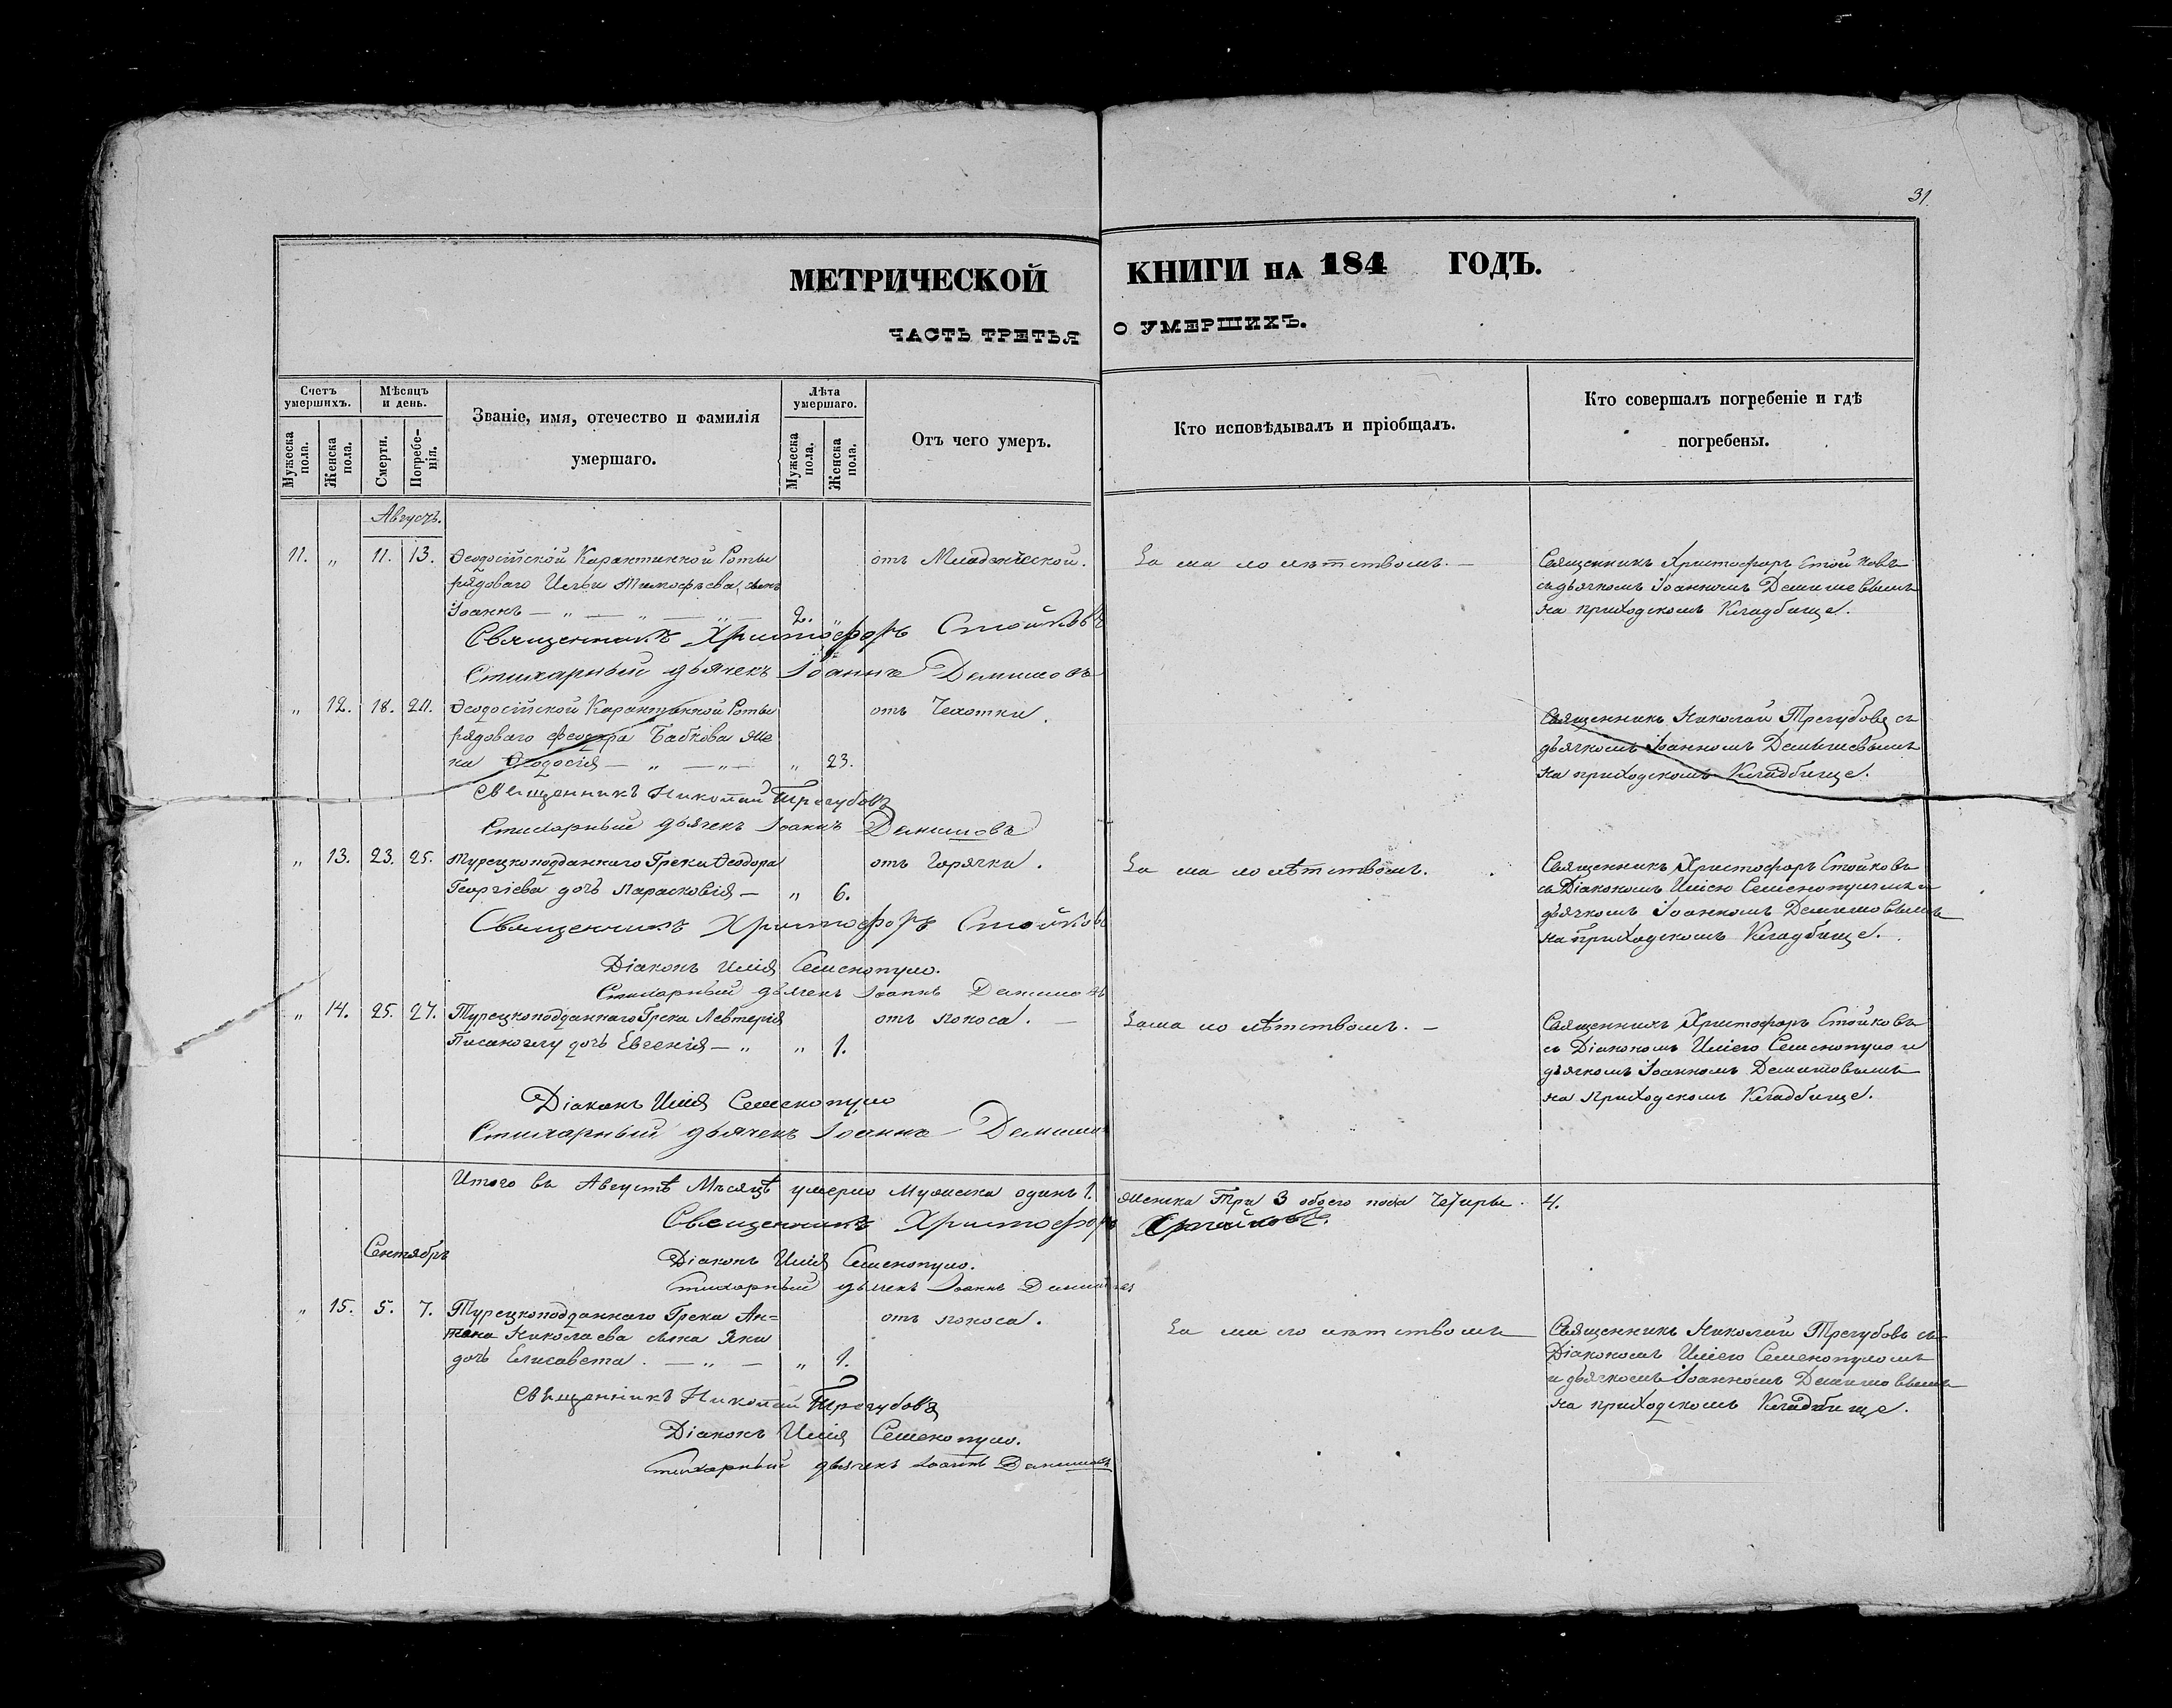 31.
МЕТРИЧЕСКОЙ КНИГИ НА 184 ГОДЪ.
ЧАСТЬ ТРЕТЬЯ О УМЕРШИХЪ.
Счетъ умершихъ.
Мужеска пола.
Женска пола.
Мѣсяцъ и день.
Смерти.
Погребенія.
Званіе, имя, отечество и фамилія
умершаго.
Лѣта умершаго.
Мужеска пола.
Женска пола.
Отъ чего умеръ.
Кто исповѣдывалъ и пріобщалъ.
Кто совершалъ погребеніе и гдѣ
погребены.
Августъ.
11. „ 11. 13. Ѳеодосійской Карантинной Роты
рядоваго Ильи Тимофѣева сынъ
Іоаннъ — „ — „ — 2. „
отъ Младенческой.
За малолѣтствомъ. —
Священникъ Христофоръ Стойковъ
съ дьячкомъ Іоанномъ
на приходскомъ Кладбище.
Священникъ Христофоръ Стойковъ
Стихарный дьячекъ Іоаннъ
„ 12. 18. 20. Ѳеодосійской Карантинной Роты
рядоваго Феодора Бабкова же
на Ѳеодосія — „ — „ — „ 23.
отъ Чахотки.
Священникъ Николай Трегубовъ съ
дьячкомъ Іоанномъ
на приходскомъ Кладбище.
Священникъ Николай Трегубовъ
Стихарный дьячекъ Іоаннъ
„ 13. 23. 25. Турецкоподданнаго Грека Ѳеодора
Георгіева дочь Парасковія — „ 6.
отъ Горячки.
За малолѣтствомъ.
Священникъ Христофоръ Стойковъ
съ Діакономъ Иліею и
дьячкомъ Іоанномъ
на приходскомъ Кладбище.
Священникъ Христофоръ Стойковъ
Діаконъ Илія
Стихарный дьячекъ Іоаннъ
„ 14. 25. 27. Турецкоподданнаго Грека Левтерія
дочь Евгенія — „ „ 1.
отъ поноса. —
За малолѣтствомъ. —
Священникъ Христофоръ Стойковъ
съ Діакономъ Иліею и
дьячкомъ Іоанномъ
на Приходскомъ Кладбище.
Діаконъ Илія
Стихарный дьячекъ Іоаннъ
Итого въ Августѣ Мѣсяцѣ умерло Мужска одинъ 1. женска Три 3 обоего пола Четыри. 4.
Священникъ Христофоръ Стойковъ.
Діаконъ Илія
Стихарный дьячекъ Іоаннъ
Сентябрь
„ 15. 5. 7. Турецкоподданнаго Грека Ан=
тона Николаева
дочь Елисавета. — „ — „ 1.
отъ поноса.
За малолѣтствомъ
Священникъ Николай Трегубовъ съ
Діакономъ Иліею
и дьячкомъ Іоанномъ
на приходскомъ Кладбище.
Священникъ Николай Трегубовъ
Діаконъ Илія
Стихарный дьячекъ Іоаннъ